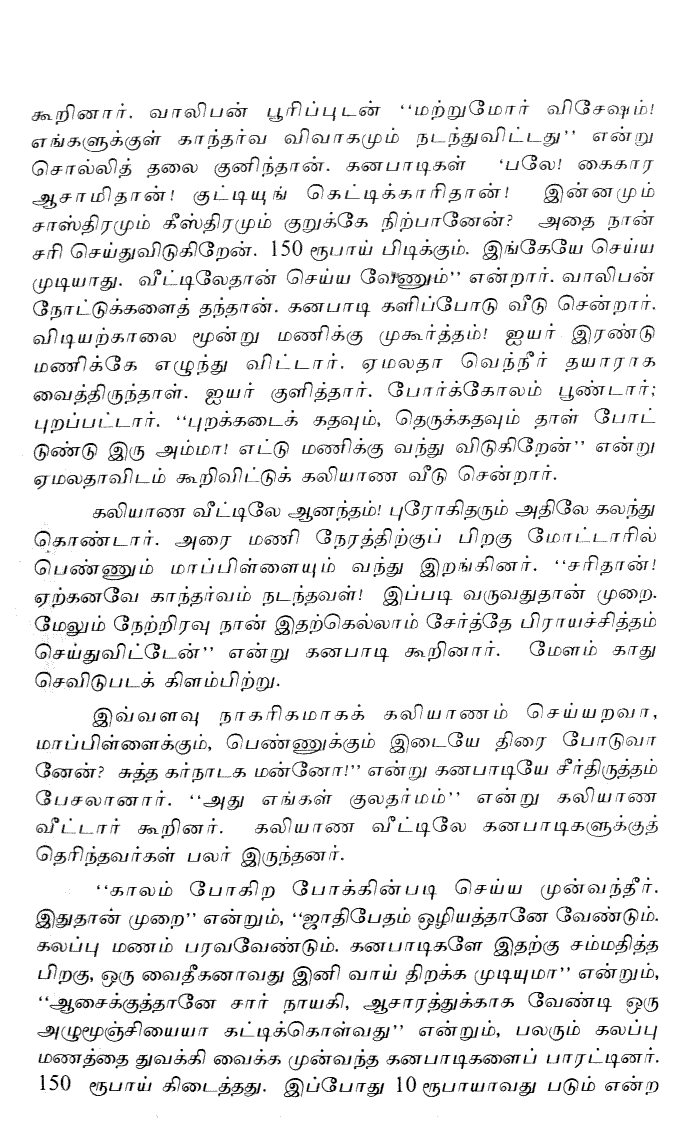 கூறினார். வாலிபன் பூரிப்புடன் “மற்றுமோர் விசேஷம்!
எங்களுக்குள் காந்தர்வ விவாகமும் நடந்துவிட்டது” என்று
சொல்லித் தலை குனிந்தான். கனபாடிகள் ‘பலே! கைகார
ஆசாமிதான்! குட்டியுங் கெட்டிக்காரிதான்! இன்னமும்
சாஸ்திரமும் கீஸ்திரமும் குறுக்கே நிற்பானேன்? அதை நான்
சரி செய்துவிடுகிறேன். 150 ரூபாய் பிடிக்கும். இங்கேயே செய்ய
முடியாது. வீட்டிலேதான் செய்ய வேணும்” என்றார். வாலிபன்
நோட்டுக்களைத் தந்தான். கனபாடி களிப்போடு வீடு சென்றார்.
விடியற்காலை மூன்று மணிக்கு முகூர்த்தம்! ஐயர் இரண்டு
மணிக்கே எழுந்து விட்டார். ஏமலதா வெந்நீர் தயாராக
வைத்திருந்தாள். ஐயர் குளித்தார். போர்க்கோலம் பூண்டார்;
புறப்பட்டார். “புறக்கடைக் கதவும், தெருக்கதவும் தாள் போட்
டுண்டு இரு அம்மா! எட்டு மணிக்கு வந்து விடுகிறேன்” என்று
ஏமலதாவிடம் கூறிவிட்டுக் கலியாண வீடு சென்றார்.
கலியாண வீட்டிலே ஆனந்தம்! புரோகிதரும் அதிலே கலந்து
கொண்டார். அரை மணி நேரத்திற்குப் பிறகு மோட்டாரில்
பெண்ணும் மாப்பிள்ளையும் வந்து இறங்கினர். “சரிதான்!
ஏற்கனவே காந்தர்வம் நடந்தவள்! இப்படி வருவதுதான் முறை.
மேலும் நேற்றிரவு நான் இதற்கெல்லாம் சேர்த்தே பிராயச்சித்தம்
செய்துவிட்டேன்” என்று கனபாடி கூறினார். மேளம் காது
செவிடுபடக் கிளம்பிற்று.
இவ்வளவு நாகரிகமாகக் கலியாணம் செய்யறவா,
மாப்பிள்ளைக்கும், பெண்ணுக்கும் இடையே திரை போடுவா
னேன்? சுத்த கர்நாடக மன்னோ!” என்று கனபாடியே சீர்திருத்தம்
பேசலானார். “அது எங்கள் குலதர்மம்” என்று கலியாண
வீட்டார் கூறினர். கலியாண வீட்டிலே கனபாடிகளுக்குத்
தெரிந்தவர்கள் பலர் இருந்தனர்.
“காலம் போகிற போக்கின்படி செய்ய முன்வந்தீர்.
இதுதான் முறை” என்றும், “ஜாதிபேதம் ஒழியத்தானே வேண்டும்.
கலப்பு மணம் பரவவேண்டும். கனபாடிகளே இதற்கு சம்மதித்த
பிறகு, ஒரு வைதீகனாவது இனி வாய் திறக்க முடியுமா” என்றும்,
“ஆசைக்குத்தானே சார் நாயகி, ஆசாரத்துக்காக வேண்டி ஒரு
அழுமூஞ்சியையா கட்டிக்கொள்வது” என்றும், பலரும் கலப்பு
மணத்தை துவக்கி வைக்க முன்வந்த கனபாடிகளைப் பாரட்டினர்.
150 ரூபாய் கிடைத்தது. இப்போது 10 ரூபாயாவது படும் என்ற